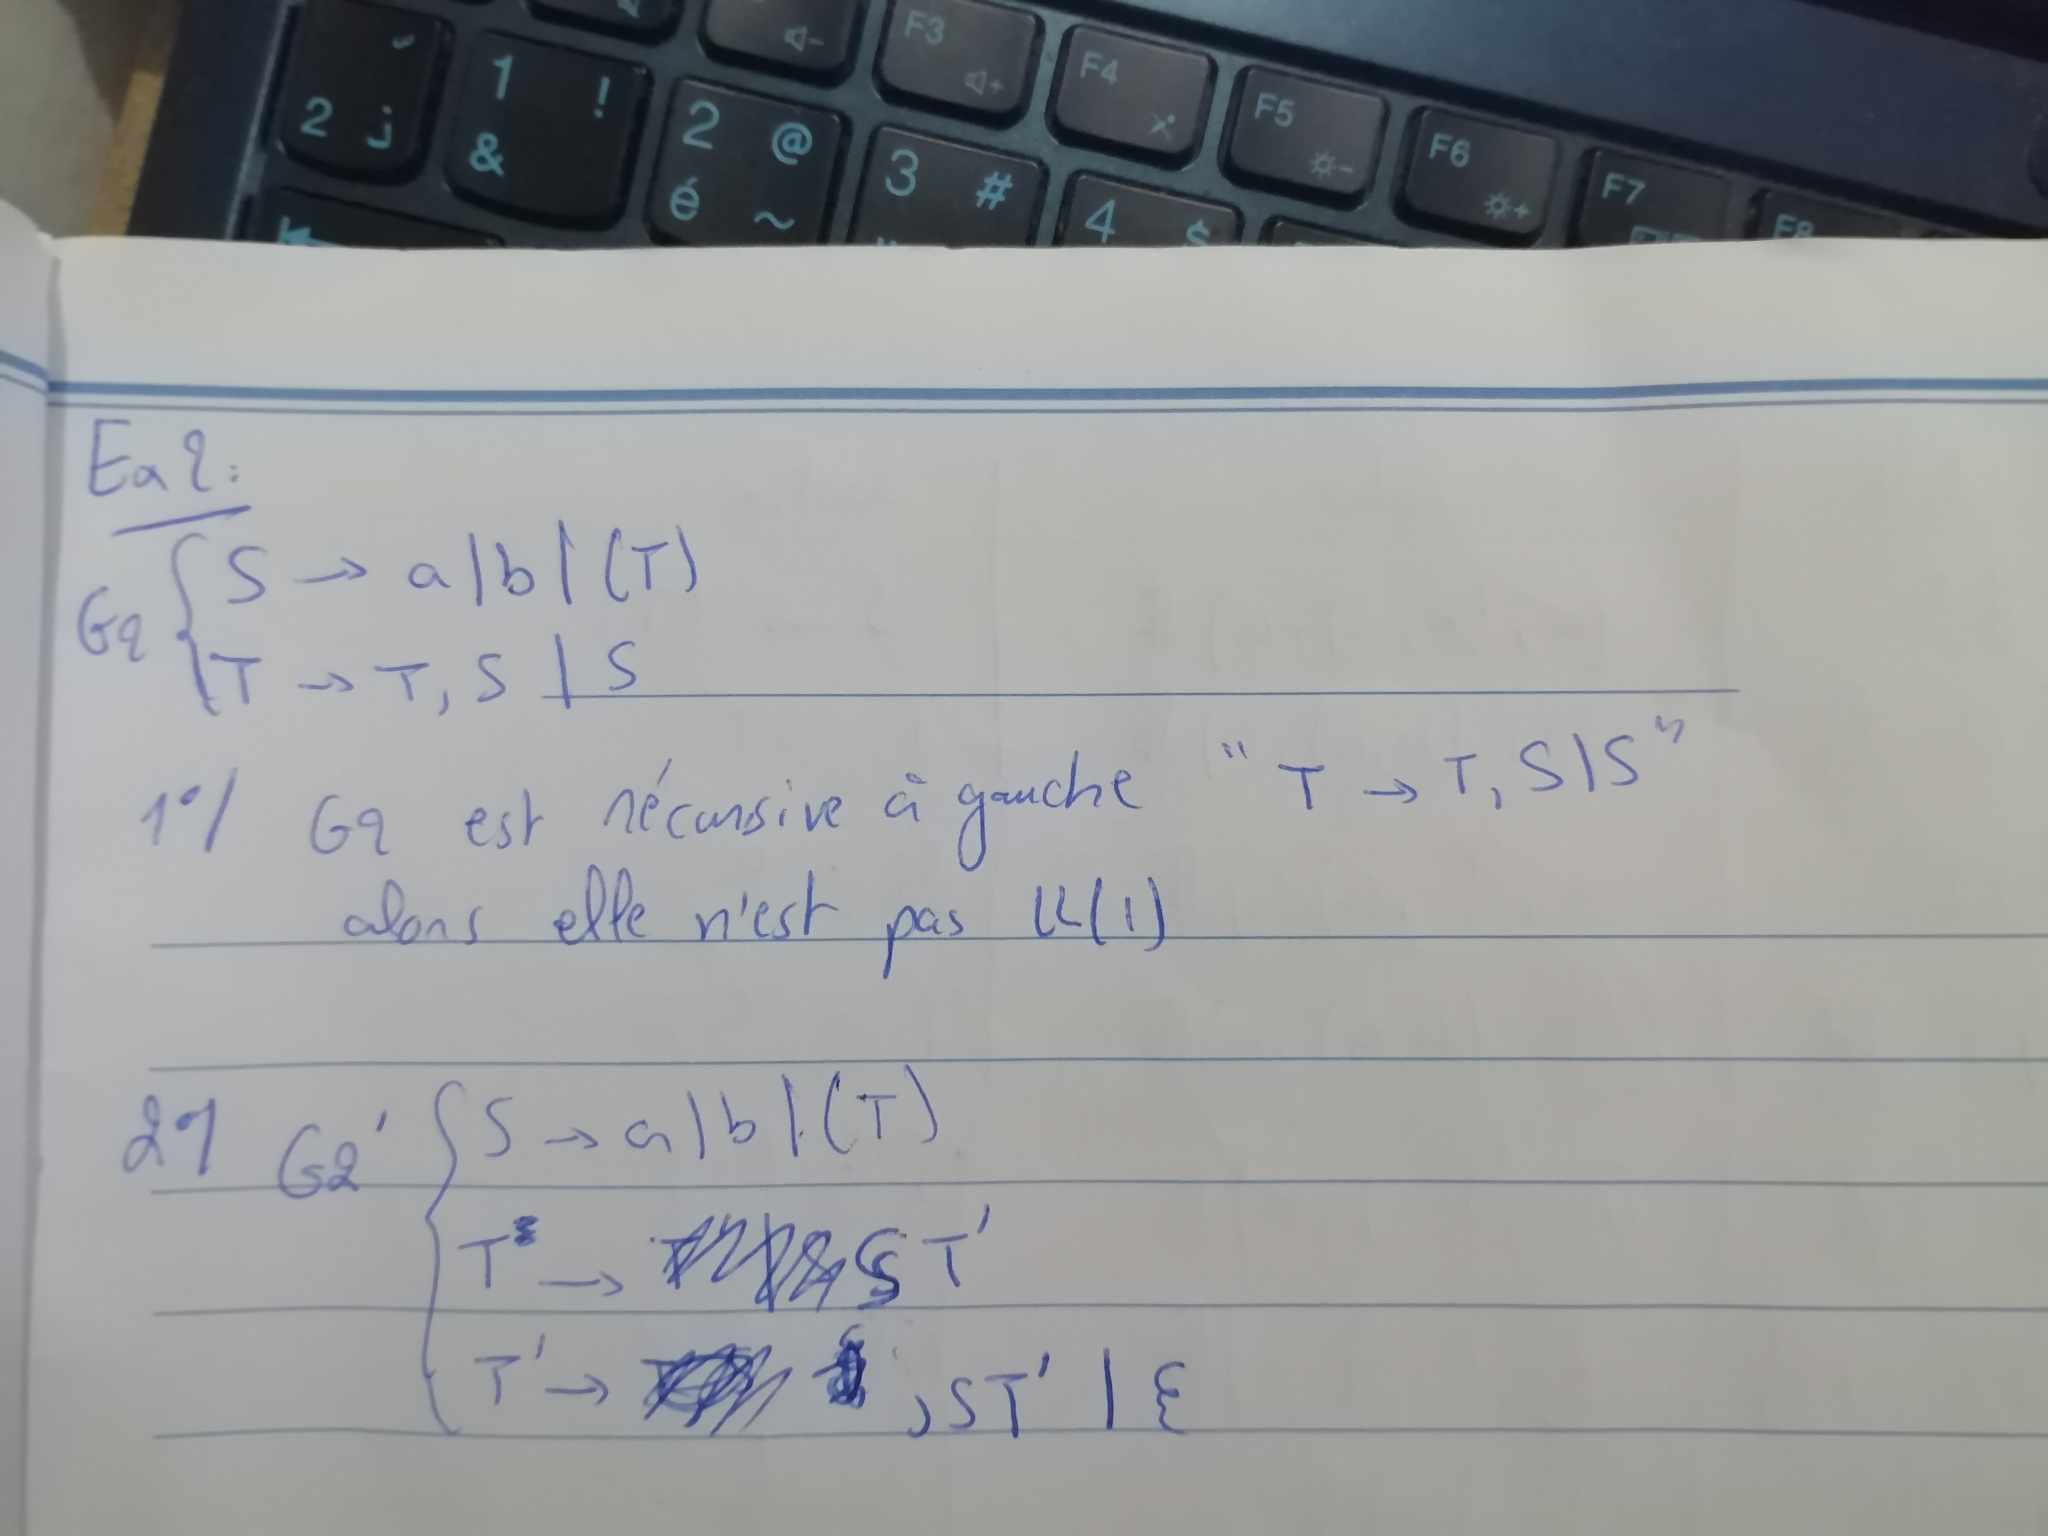 F3 F4 F5 F6 F7 F8
2 1 ! & 2 @ é ~ 3 # 4 $
Ex 2:
G2 { S → a | b | (T)
T → T, S | S
1°/ G2 est récursive à gauche " T → T, S | S "
alors elle n'est pas LL(1)
2°/ G2' { S → a | b | (T)
T → S T'
T' → , S T' | ε